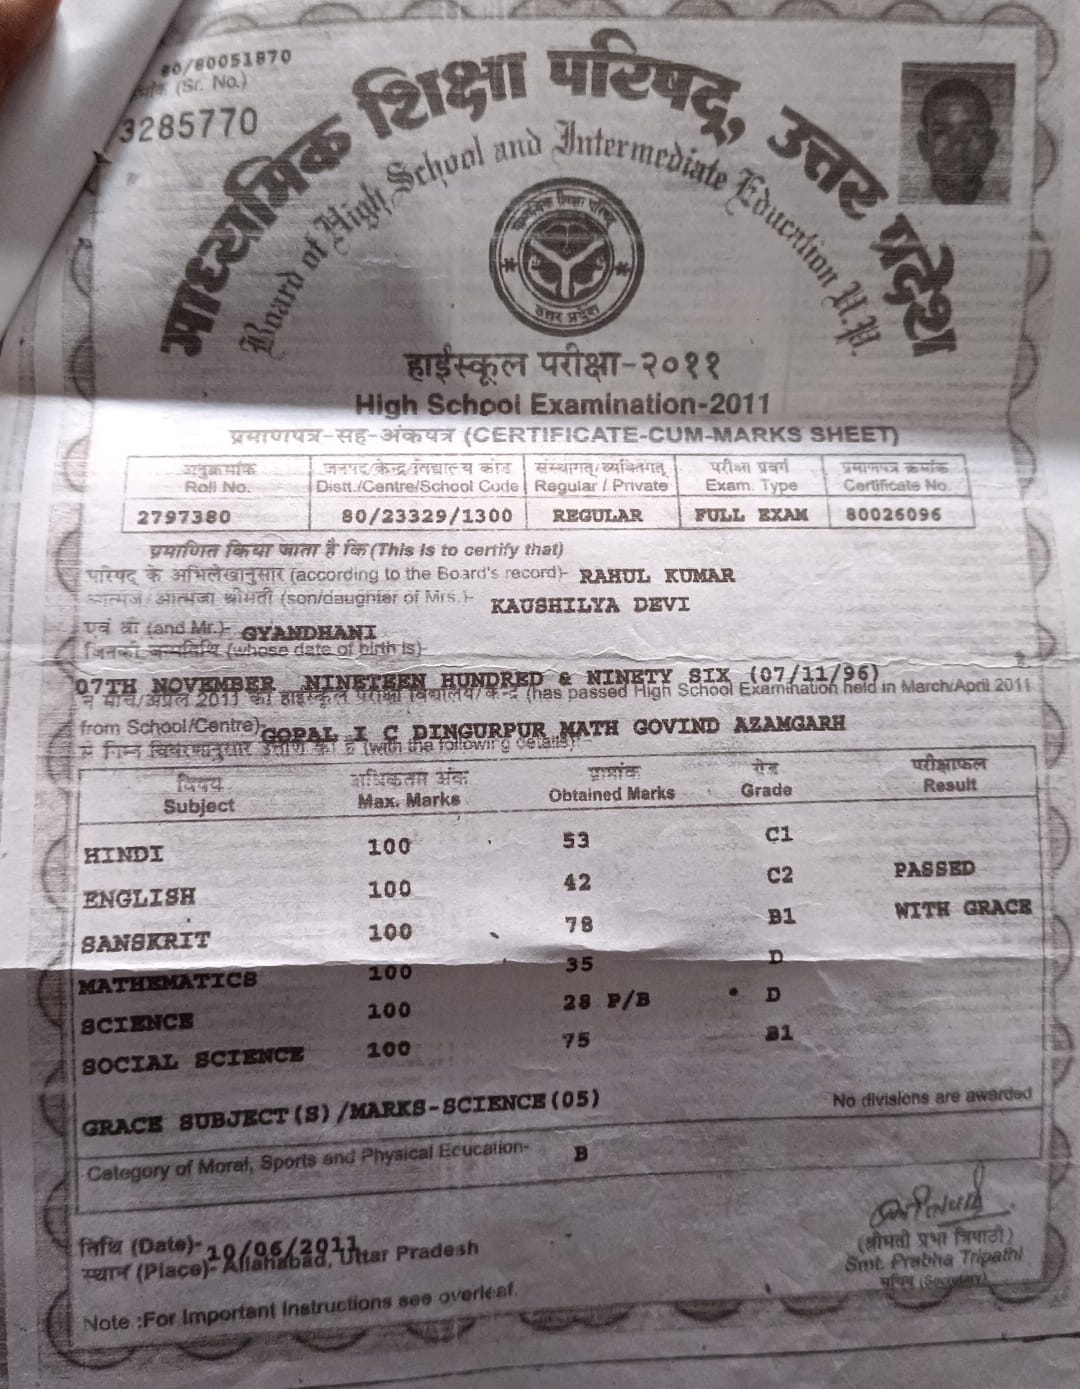 80/80051870
क्रमांक (Sr. No.)
3285770
माध्यमिक शिक्षा परिषद्, उत्तर प्रदेश
Board of High School and Intermediate Education U.P.
माध्यमिक शिक्षा परिषद्
उत्तर प्रदेश
हाईस्कूल परीक्षा-२०११
High School Examination-2011
प्रमाणपत्र-सह-अंकपत्र (CERTIFICATE-CUM-MARKS SHEET)
अनुक्रमांक जनपद/केन्द्र/विद्यालय कोड संस्थागत/व्यक्तिगत् परीक्षा प्रवर्ग प्रमाणपत्र क्रमांक
Roll No. Distt./Centre/School Code Regular / Private Exam. Type Certificate No.
2797380 80/23329/1300 REGULAR FULL EXAM 80026096
प्रमाणित किया जाता है कि (This is to certify that)
परिषद के अभिलेखानुसार (according to the Board's record)- RAHUL KUMAR
आत्मज/आत्मजा श्रीमती (son/daughter of Mrs.)- KAUSHILYA DEVI
एवं श्री (and Mr.)- GYANDHANI
जिनकी जन्मतिथि (whose date of birth is)-
07TH NOVEMBER NINETEEN HUNDRED & NINETY SIX (07/11/96)
ने मार्च/अप्रैल 2011 की हाईस्कूल परीक्षा विद्यालय/केन्द्र (has passed High School Examination held in March/April 2011
from School/Centre)- GOPAL I C DINGURPUR MATH GOVIND AZAMGARH
से निम्न विवरणानुसार उत्तीर्ण की है (with the following details):-
विषय अधिकतम अंक प्राप्तांक ग्रेड परीक्षाफल
Subject Max. Marks Obtained Marks Grade Result
HINDI 100 53 C1
ENGLISH 100 42 C2 PASSED
SANSKRIT 100 78 B1 WITH GRACE
MATHEMATICS 100 35 D
SCIENCE 100 28 P/B D
SOCIAL SCIENCE 100 75 B1
GRACE SUBJECT(S)/MARKS-SCIENCE(05) No divisions are awarded
Category of Moral, Sports and Physical Education- B
तिथि (Date)- 10/06/2011
स्थान (Place)- Allahabad, Uttar Pradesh
(श्रीमती प्रभा त्रिपाठी)
Smt. Prabha Tripathi
सचिव (Secretary)
Note :For Important Instructions see overleaf.